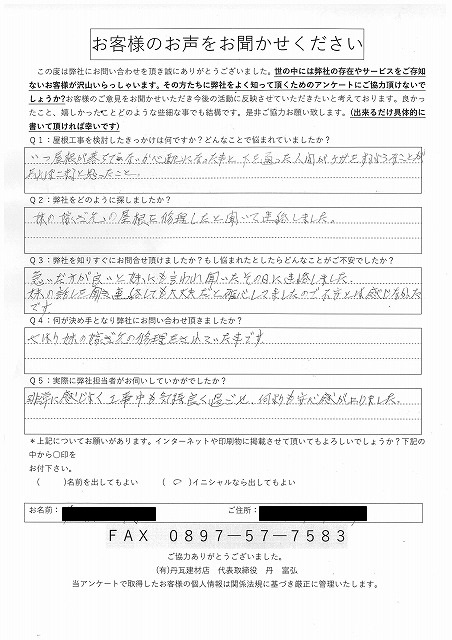 お客様のお声をお聞かせください
この度は弊社にお問い合わせを頂き誠にありがとうございました。世の中には弊社の存在やサービスをご存知
ないお客様が沢山いらっしゃいます。その方たちに弊社をよく知って頂くためのアンケートにご協力頂けないで
しょうか?お客様のご意見をお聞かせいただき今後の活動に反映させていただきたいと考えております。良かっ
たこと、嬉しかったことどのような些細な事でも結構です。是非ご協力お願い致します。(出来るだけ具体的に
書いて頂ければ幸いです)
Q1:屋根工事を検討したきっかけは何ですか?どんなことで悩まれていましたか?
いつ屋根が落ちて 心配になった事と 下を通った人間がケガを
と思ったこと
Q2:弊社をどのように探しましたか?
妹の嫁ぎ先の屋根を修理したと聞いて連絡しました。
Q3:弊社を知りすぐにお問合せ頂けましたか?もし悩まれたとしたらどんなことがご不安でしたか?
急いだ方が良いと妹にも言われ聞いたその日に連絡しました。
妹の話しを聞き連絡しても大丈夫だと確心してましたので不安とは感じなかった
です。
Q4:何が決め手となり弊社にお問い合わせ頂けましたか?
やはり妹の嫁ぎ先の修理をされていた事です。
Q5:実際に弊社担当者がお伺いしていかがでしたか?
非常に感じよく工事中も気持良く過ごせ、何かも安心感がありました。
*上記についてお願いがあります。インターネットや印刷物に掲載させて頂いてもよろしいでしょうか?下記の
中から〇印を
お付下さい。
( )名前を出してもよい (○)イニシャルなら出してもよい
お名前: ご住所:
FAX 0897-57-7583
ご協力ありがとうございました。
(有)丹瓦建材店 代表取締役 丹 富弘
当アンケートで取得したお客様の個人情報は関係法規に基づき厳正に管理いたします。